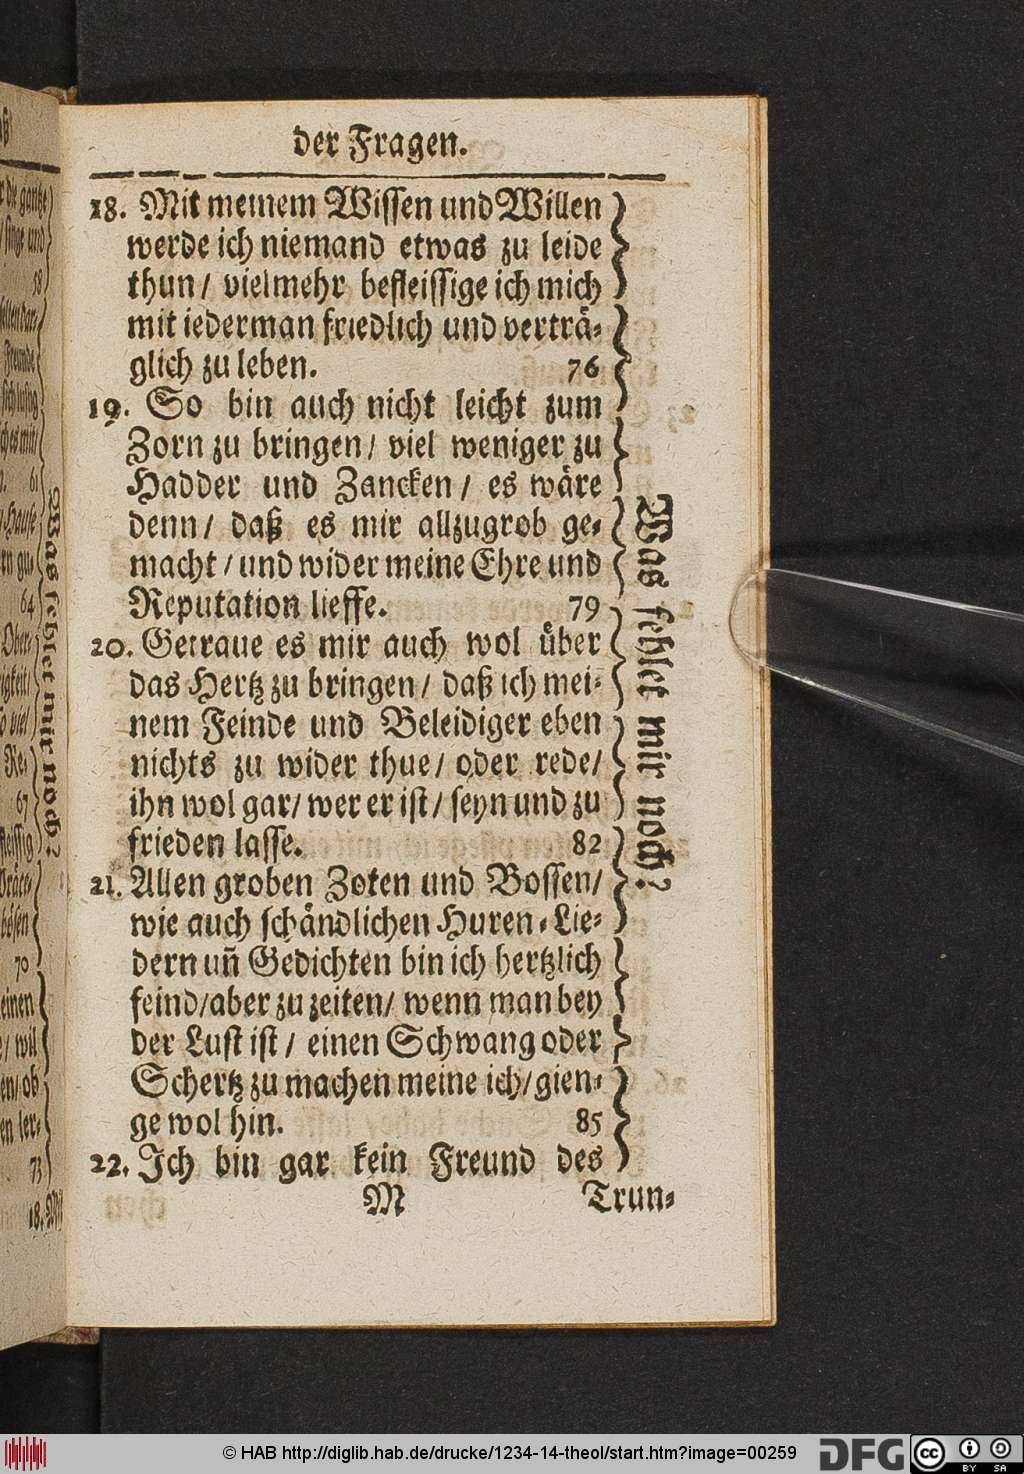 der Fragen.
18. Mit meinem Wissen und Willen
werde ich niemand etwas zu leide
thun / vielmehr befleissige ich mich
mit iederman friedlich und verträ-
glich zu leben. 76
19. So bin auch nicht leicht zum
Zorn zu bringen / viel weniger zu
Hadder und Zancken / es wäre
denn / daß es mir allzugrob ge-
macht / und wider meine Ehre und
Reputation lieffe. 79
20. Getraue es mir auch wol über
das Hertz zu bringen / daß ich mei-
nem Feinde und Beleidiger eben
nichts zu wider thue / oder rede /
ihn wol gar / wer er ist / seyn und zu
frieden lasse. 82
21. Allen groben Zoten und Bossen /
wie auch schändlichen Huren-Lie-
dern uñ Gedichten bin ich hertzlich
feind / aber zu zeiten / wenn man bey
der Lust ist / einen Schwang oder
Schertz zu machen meine ich / gien-
ge wol hin. 85
22. Ich bin gar kein Freund des
M Trun-
Was fehlet mir noch?
Was fehlet mir noch?
58
61
64
67
70
73
© HAB http://diglib.hab.de/drucke/1234-14-theol/start.htm?image=00259
DFG
cc BY SA